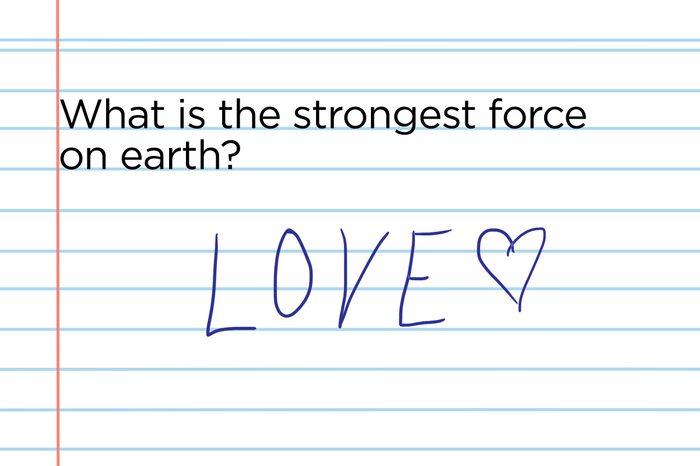 What is the strongest force
on earth?
LOVE ♡